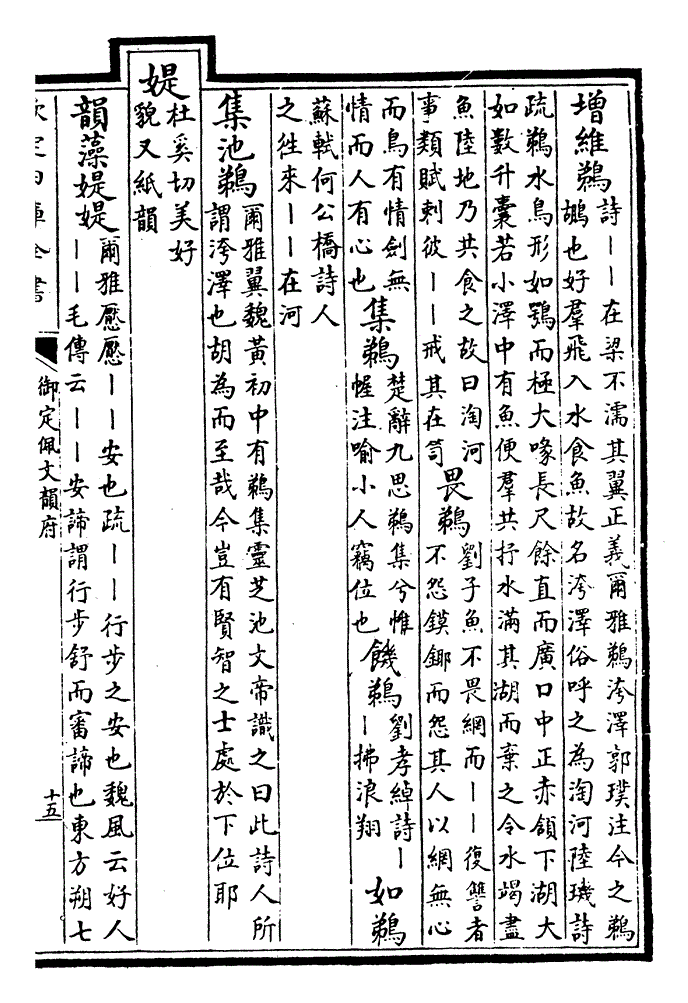 增維鵜
詩――在梁不濡其翼正義爾雅鵜洿澤郭璞注今之鵜
鶘也好羣飛入水食魚故名洿澤俗呼之為淘河陸璣詩
疏鵜水鳥形如鶚而極大喙長尺餘直而廣口中正赤頷下湖大
如數升囊若小澤中有魚便羣共抒水滿其湖而棄之令水竭盡
魚陸地乃共食之故曰淘河
事類賦刺彼――戒其在笱
畏鵜
劉子魚不畏網而――復讐者
不怨鏌鋣而怨其人以網無心
而鳥有情劍無
情而人有心也
集鵜
楚辭九思鵜集兮惟
幄注喻小人竊位也
饑鵜
劉孝綽詩―
―拂浪翔
如鵜
蘇軾何公橋詩人
之往來――在河
集池鵜
爾雅翼魏黃初中有鵜集靈芝池文帝識之曰此詩人所
謂洿澤也胡為而至哉今豈有賢智之士處於下位耶
媞
杜奚切美好
貌又紙韻
韻藻媞媞
爾雅懕懕――安也疏――行步之安也魏風云好人
――毛傳云――安諦謂行步舒而審諦也東方朔七
欽定四庫全書
御定佩文韻府
十五